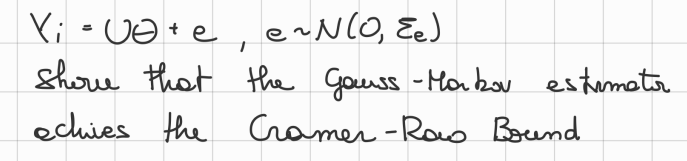 Yi = UΘ + e , e ~ N(0, Σe)
Show that the Gauss-Markov estimator
achies the Cramer-Rao Bound